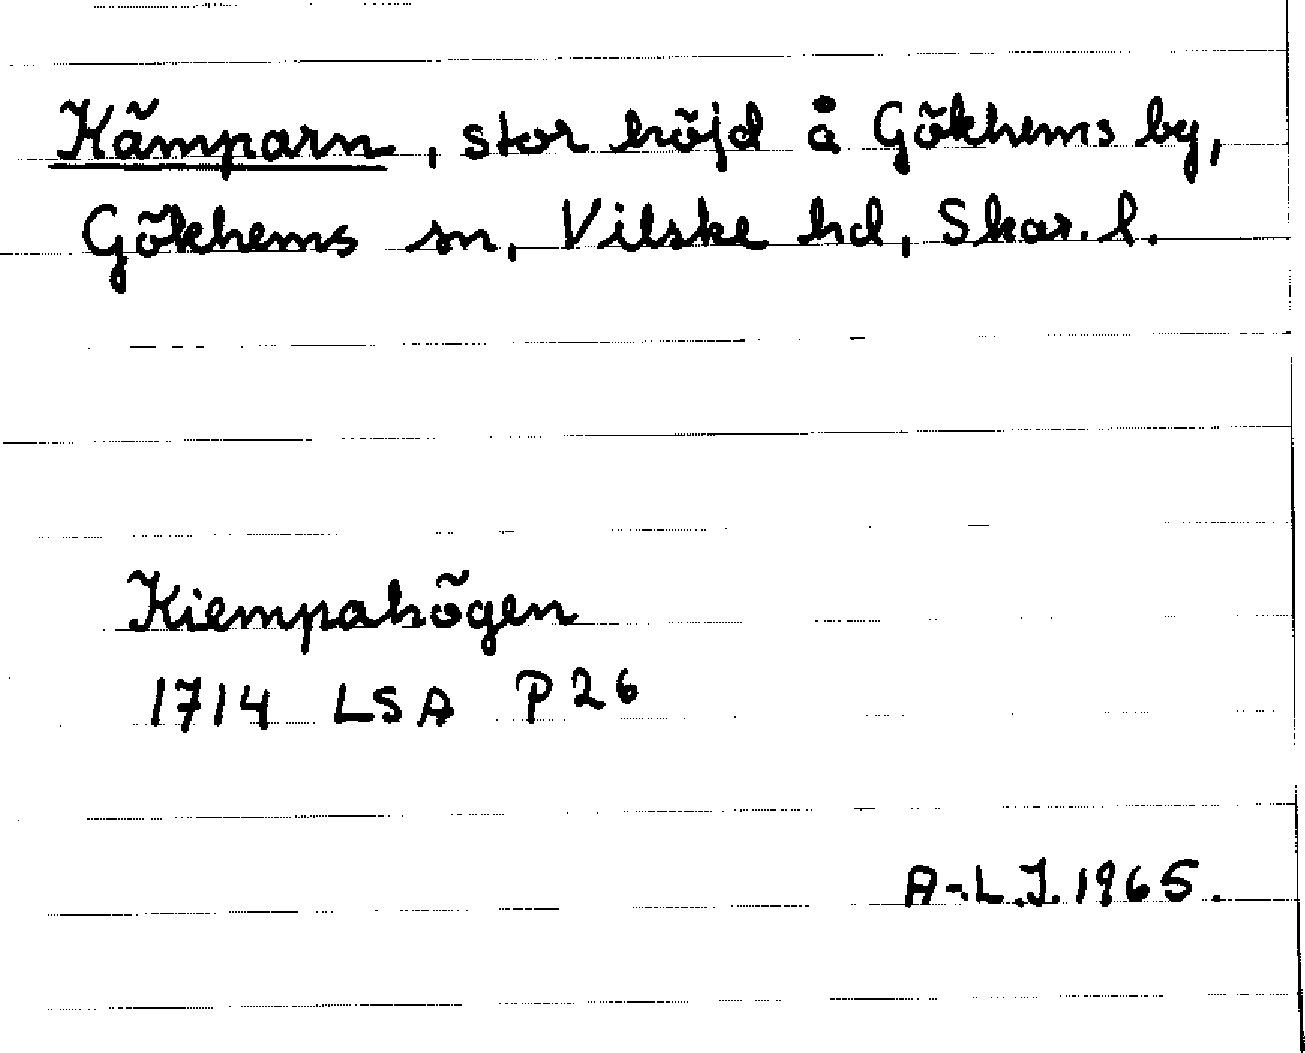 Kämparn, stor höjd å Gökhems by,
Gökhems sn, Vilske hd, Skar. l.
Kiempahögen
1714 LSA P 26
A-L.J. 1965.